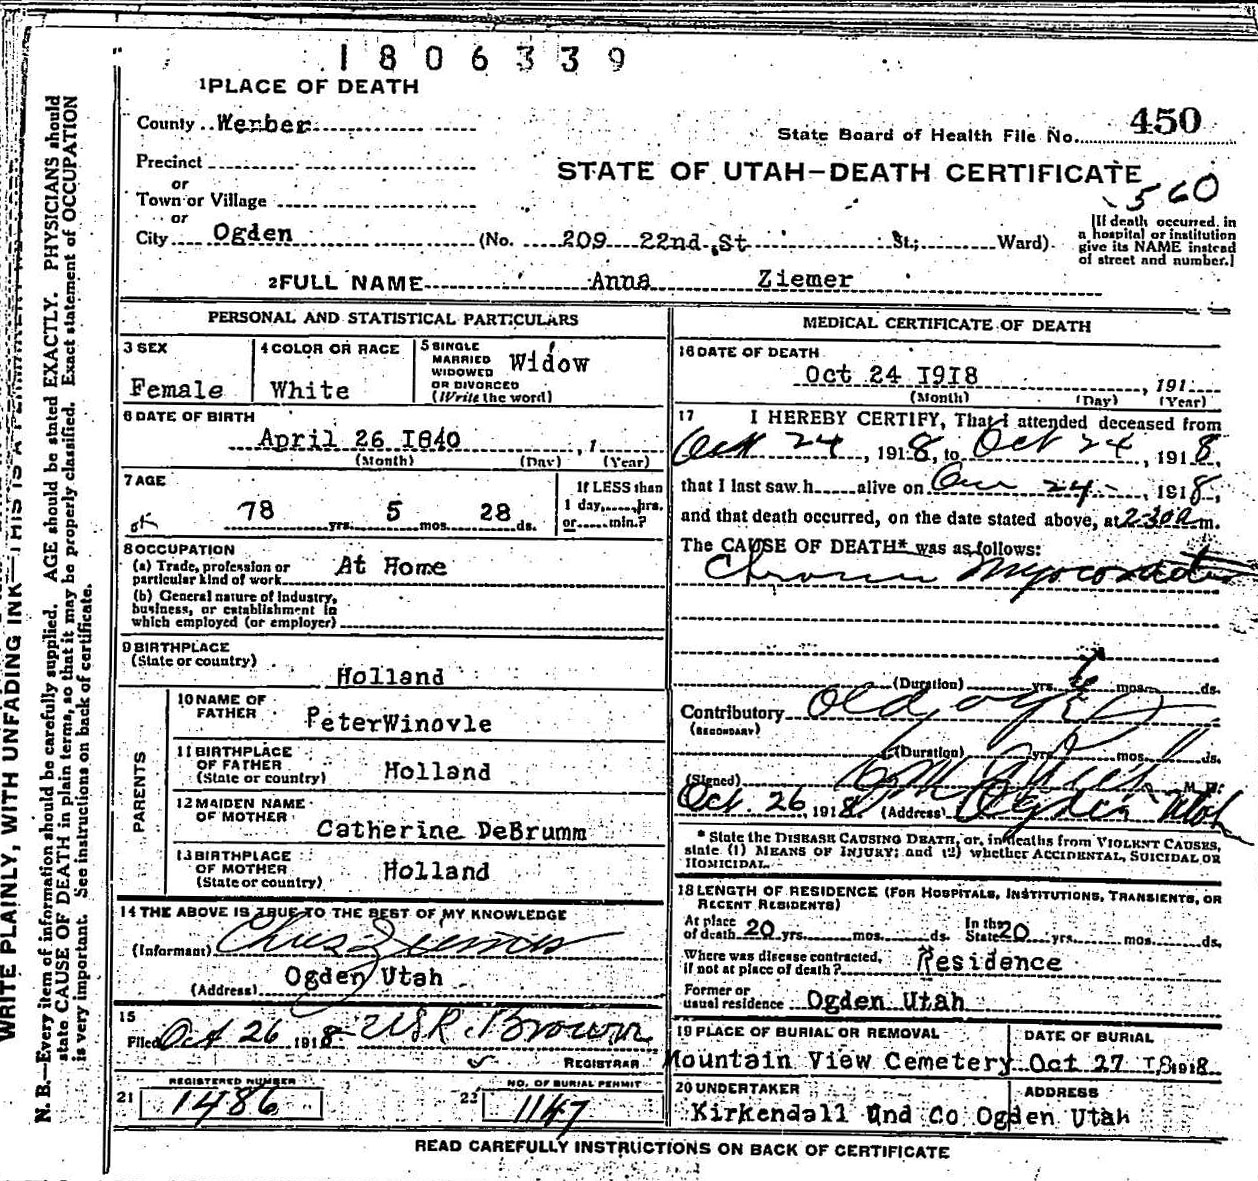 1806339
1 PLACE OF DEATH
County Werber
State Board of Health File No. 450
Precinct
or
STATE OF UTAH—DEATH CERTIFICATE
Town or Village
560
or
City Ogden (No. 209 22nd St St.; Ward)
[If death occurred in a hospital or institution give its NAME instead of street and number.]
2 FULL NAME Anna Ziemer
PERSONAL AND STATISTICAL PARTICULARS
3 SEX
Female
4 COLOR OR RACE
White
5 SINGLE
MARRIED
WIDOWED
OR DIVORCED
(Write the word)
Widow
6 DATE OF BIRTH
April 26 1840, 1
(Month) (Day) (Year)
7 AGE
78 yrs. 5 mos. 28 ds.
If LESS than
1 day, hrs.
or min.?
8 OCCUPATION
(a) Trade, profession or
particular kind of work At Home
(b) General nature of Industry,
business, or establishment in
which employed (or employer)
9 BIRTHPLACE
(State or country)
Holland
PARENTS
10 NAME OF
FATHER PeterWinovle
11 BIRTHPLACE
OF FATHER
(State or country) Holland
12 MAIDEN NAME
OF MOTHER
Catherine DeBrumm
13 BIRTHPLACE
OF MOTHER
(State or country) Holland
14 THE ABOVE IS TRUE TO THE BEST OF MY KNOWLEDGE
(Informant) Chas Ziemer
(Address) Ogden Utah
15
Filed Oct 26 1918 Brown
REGISTRAR
REGISTERED NUMBER
21 1486
NO. OF BURIAL PERMIT
22 1147
MEDICAL CERTIFICATE OF DEATH
16 DATE OF DEATH
Oct 24 1918, 191
(Month) (Day) (Year)
17 I HEREBY CERTIFY, That I attended deceased from
Oct 24, 1918, to Oct 24, 1918,
that I last saw h alive on 24, 1918,
and that death occurred, on the date stated above, at 2-30 a m.
The CAUSE OF DEATH* was as follows:
Chronic Myocarditis
(Duration) yrs. mos. ds.
Contributory Old age
(SECONDARY)
(Duration) yrs. mos. ds.
(Signed) M. D.
Oct. 26, 1918 (Address) Ogden Utah
* State the DISEASE CAUSING DEATH, or, in deaths from VIOLENT CAUSES,
state (1) MEANS OF INJURY; and (2) whether ACCIDENTAL, SUICIDAL OR
HOMICIDAL.
18 LENGTH OF RESIDENCE (FOR HOSPITALS, INSTITUTIONS, TRANSIENTS, OR
RECENT RESIDENTS)
At place
of death 20 yrs. mos. ds. In the State 20 yrs. mos. ds.
Where was disease contracted,
if not at place of death? Residence
Former or
usual residence Ogden Utah
19 PLACE OF BURIAL OR REMOVAL
Mountain View Cemetery
DATE OF BURIAL
Oct 27 1918
20 UNDERTAKER
ADDRESS
Kirkendall Und Co Ogden Utah
READ CAREFULLY INSTRUCTIONS ON BACK OF CERTIFICATE
WRITE PLAINLY, WITH UNFADING INK—THIS IS A PERMANENT
N. B.—Every item of information should be carefully supplied. AGE should be stated EXACTLY. PHYSICIANS should
state CAUSE OF DEATH in plain terms, so that it may be properly classified. Exact statement of OCCUPATION
is very important. See instructions on back of certificate.